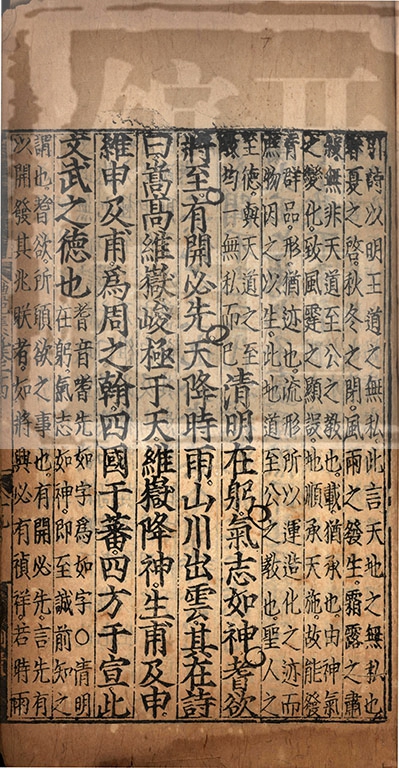 引詩以明王道之無私此言天地之無私也
春夏之啓秋冬之閉風雨之發生霜露之肅
殺無非天道至公之敎也載猶承也由神氣
之變化致風霆之顯設地順承天施故能發
育群品形猶迹也流形所以運造化之迹而
庶物因之以生此地道至公之敎也聖人之
至德與天道之至
敎均一無私而已
清明在躬氣志如神耆欲
將至有開必先天降時雨山川出雲其在詩
曰嵩高維嶽峻極于天維嶽降神生甫及申
維申及甫爲周之翰四國于蕃四方于宣此
文武之德也
耆音嗜先如字爲如字○清明
在躬氣志如神即至誠前知之
謂也耆欲所願欲之事也有開必先言先有
以開發其兆眹者如將興必有禎祥若時雨